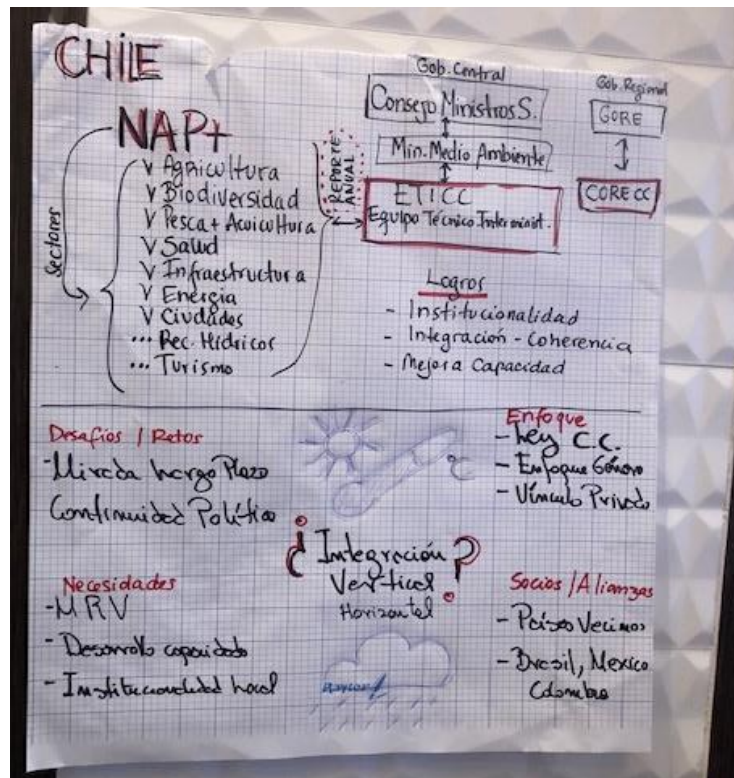 CHILE
NAP+
Sectores
V Agricultura
V Biodiversidad
V Pesca + Acuicultura
V Salud
V Infraestructura
V Energía
V Ciudades
... Rec. Hídricos
... Turismo
REPORTE
ANUAL
Gob. Central
Consejo Ministros S.
Min. Medio Ambiente
ETICC
Equipo Técnico Interminist.
Gob. Regional
GORE
CORECC
Logros
- Institucionalidad
- Integración - Coherencia
- Mejora Capacidad
Desafíos / Retos
- Mirada Largo Plazo
Continuidad Política
Enfoque
- Ley C.C.
- Enfoque Género
- Vínculo Privado
°C
¿Integración?
Vertical
Horizontal
Necesidades
- MRV
- Desarrollo capacidades
- Institucionalidad local
Socios / Alianzas
- Países Vecinos
- Brasil, Mexico
Colombia